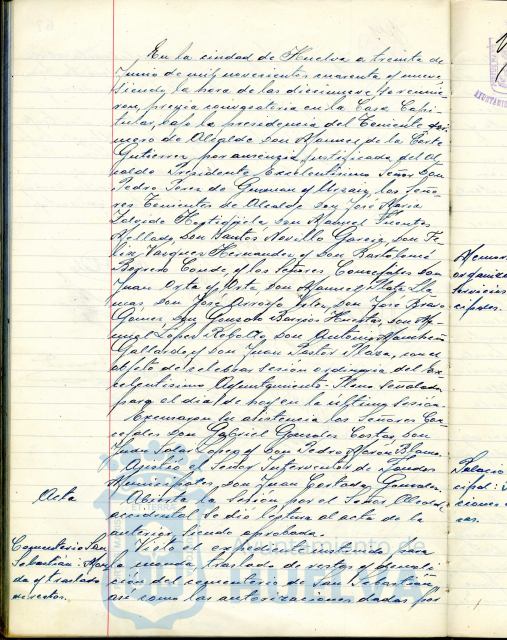 En la ciudad de Huelva a treinta de
Junio de mil novecientos cuarenta y nueve
siendo la hora de las diecinueve se reunie
ron, previa convocatoria en la Casa Capi-
tular, bajo la presidencia del Teniente pri-
mero de Alcalde Don Manuel de la Corte
Gutierrez por ausencia justificada del Al
calde Presidente Excelentísimo Señor Don
Pedro Perez de Guzman y Urzaiz, los Seño-
res Tenientes de Alcalde Don José Maria
Don Manuel Fuentes
Mellado, Don Santos Novillo Garcia, Don Fe-
lix Vazquez Hernandez y Don Bartolomé
Borrero Conde, y los Señores Concejales Don
Juan Orta y Orta, Don Manuel Mata Lla-
mas, Don José Arroyo Don José Bravo
Gomez, Don Gonzalo Barrios Huertas, Don Ma-
nuel López Rebollo, Don Antonio
Gallardo y Don Juan Pastor Plaza, con el
objeto de celebrar sesión ordinaria del Ex
celentísimo Ayuntamiento Pleno señalada
para el día de hoy en la última sesión.
Excusaron la asistencia los Señores Con
cejales Don Gabriel Gonzalez Don
Juan Lopez y Don Pedro Moron Blanco.
Asistió el Señor Interventor de Fondos
Municipales, Don Juan Gonzalez.
Acta
Abierta la sesión por el Señor Alcalde
accidental se dió lectura al acta de la
anterior siendo aprobada.
Cementerio San
Sebastián:
da y traslado
de restos.
Visto el expediente instruido para
la monda, traslado de restos y demoli
cion del cementerio de San Sebastián,
así como las autorizaciones dadas por
organiza
servicios
cipales.
Palacio
cipal:
ciones
ras.
Ayuntamiento de
HUELVA
ET TERRA